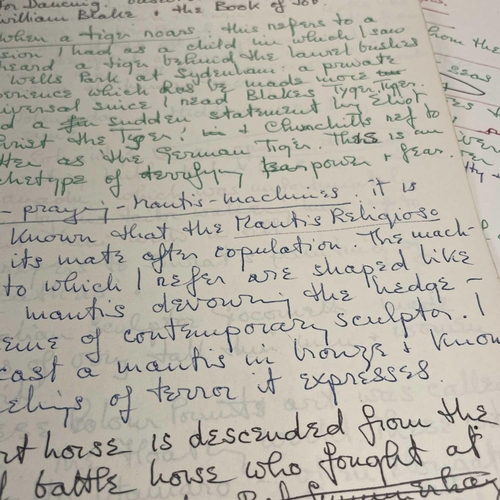 for Dancing.
William Blake & the Book of Job
when a tiger roars. this refers to a
sion I had as a child in which I saw
heard a tiger behind the laurel bushes
Wells Park at Sydenham. a private
erience which has be made more
iversal since I read Blakes Tyger. Tyger.
d a sudden statement by Eliot
hrist the Tyger! & Churchills ref to
tler as the German Tiger. This is an
chetype of terrifying power & fear.
- praying-Mantis-machines. it is
known that the Mantis Religiosa
its mate after copulation. The mach-
to which I refer are shaped like
mantis devouring the hedge-
eme of contemporary sculptor. I
cast a mantis in bronze & know
elings of terror it expresses
rt horse is descended from the
battle horse who fought at
from the
seas